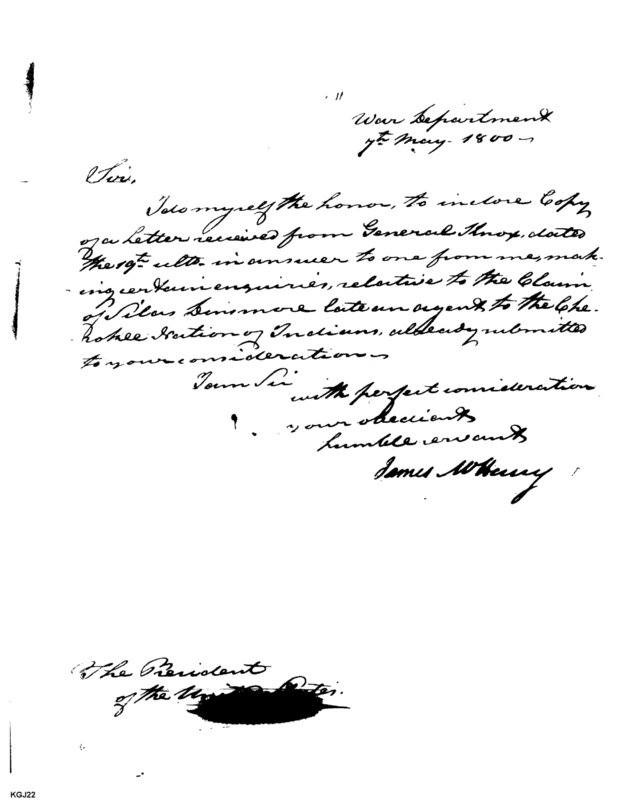 War Department
7th May. 1800
Sir,
I do myself the honor, to inclose Copy
of a Letter received from General Knox, dated
the 19th ulto. in answer to one from me, mak-
ing certain enquiries, relative to the Claim
of Silas Dinsmore late an agent to the Che-
rokee Nation of Indians, already submitted
to your consideration
I am Sir
with perfect consideration
your obedient
humble servant
James McHenry
The President
of the United States.
KGJ22